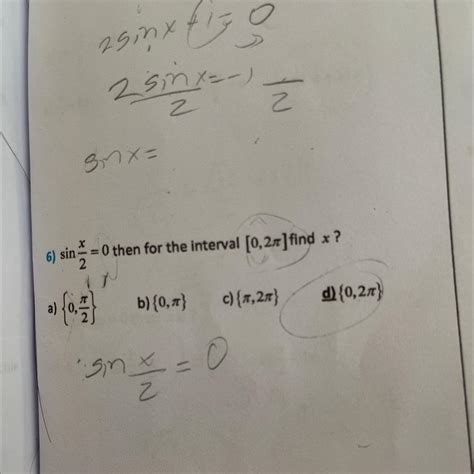 2sinx + 1 = 0
2 sinx/2 = -1/2
sinx =
6) sin x/2 = 0 then for the interval [0,2π] find x ?
a) {0, π/2} b) {0, π} c) {π, 2π} d) {0, 2π}
sin x/2 = 0